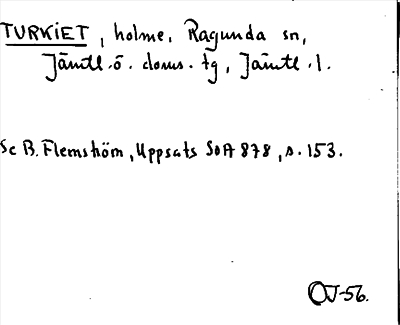 TURKIET, holme, Ragunda sn,
Jämtl. ö. doms. tg, Jämtl. l.
Se B. Flemström, Uppsats SOA 878, s. 153.
OJ-56.